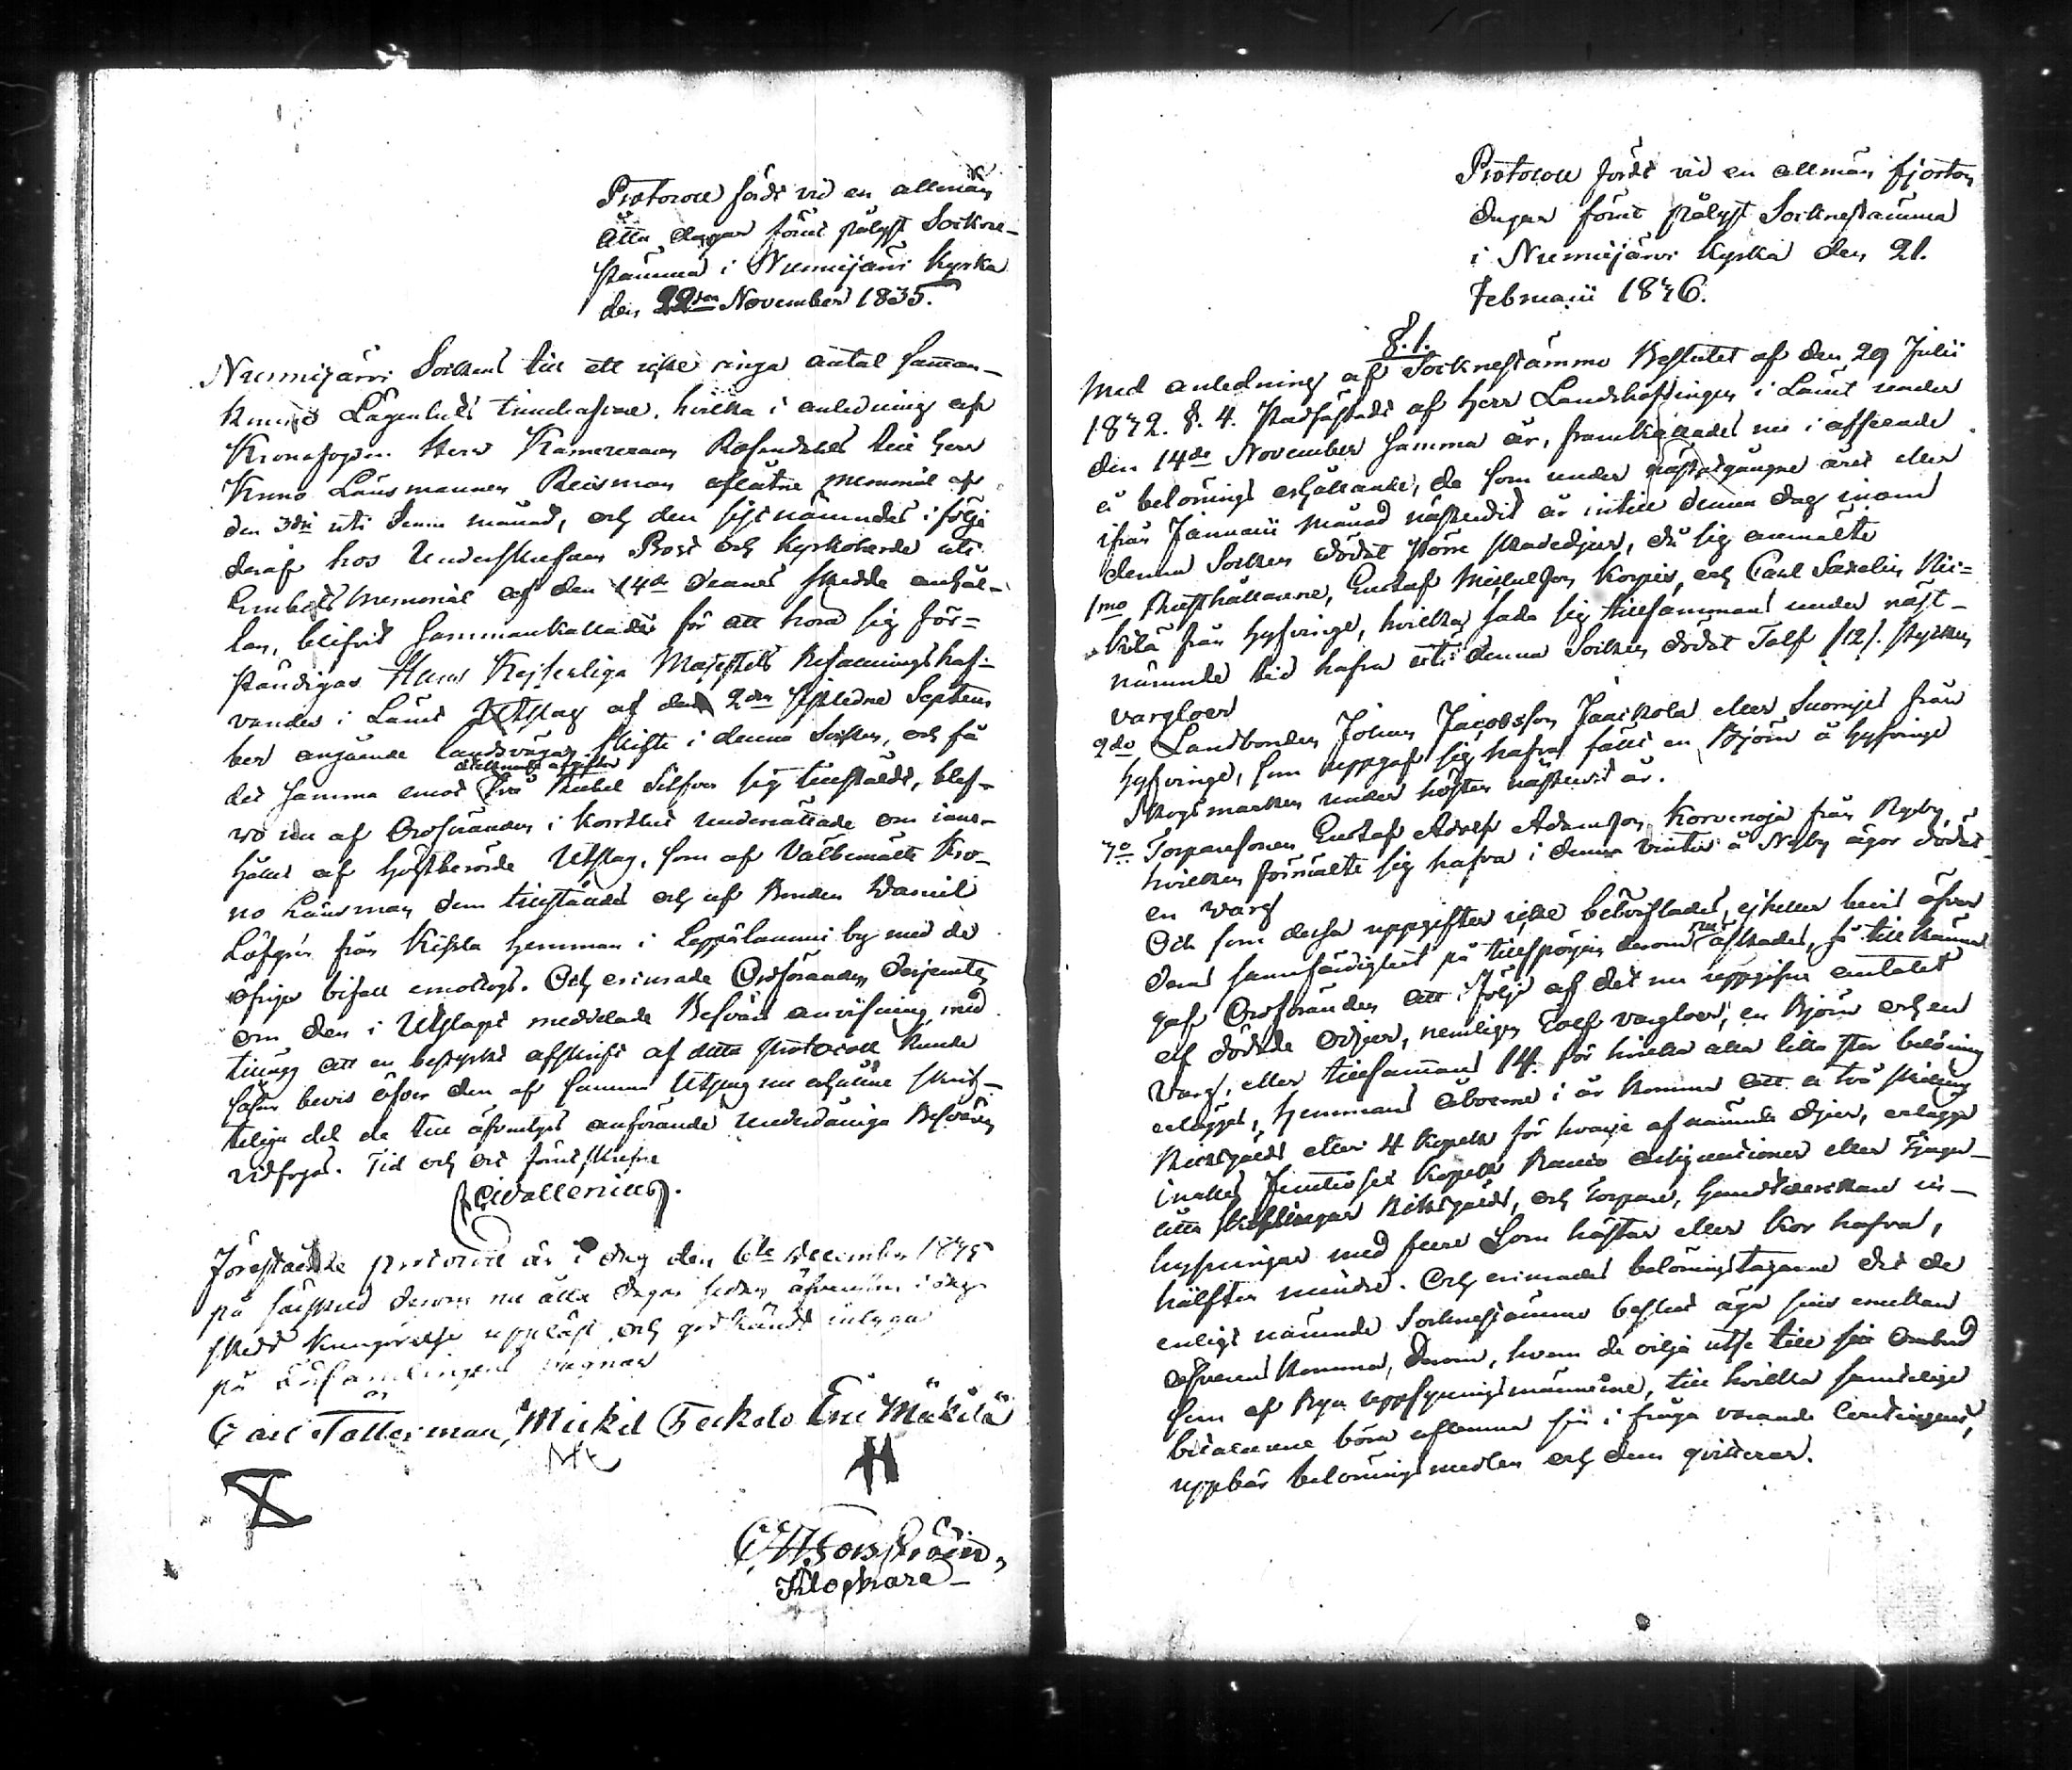 Protocoll fördt vid en allmän
åtta dagar förut pålyst Sockne-
stämma i Nurmijärvi Kyrka
den 22den November 1835.
Nurmijärvi Sockens till ett icke ringa antal samman-
komne Lägenhets innehafvare, hvilka i anledning af
Kronofogden Herr Kamereraren Rosendahls till Herr
Krono Länsmannen Reisman aflåtne Memorial af
den 3die uti denna månad, och den sistnämndes i följe
deraf hos Underskrefven Prost och Kyrkoherde uti
Embets Memorial af den 14de dennes skedde anhål-
lan, blifvit sammankallade för att höra sig för-
ständigas Hans Kejserliga Majestets Befallningshaf-
vandes i Länet Utslag af den 2den sistledne Septem
ber angående landsvägar skifte i denna Socken, och få
det samma emot stadgade afgiften två Rubel Silfver sig tillstäldt, blef-
vo nu af Ordföranden i korthet underrättade om inne-
hållet af högstberörde Utslag, som af Välbemälte Kro-
no Länsman dem tillstäldes och af Bonden Daniel
Löfgrén från Kissla hemman i Leppälammi by med de
öfriges bifall emottogs. Och erinrade Ordföranden derjemte
om den i Utslaget meddelade Besvärs anvisning, med
tillägg att en bestyrkt afskrift af detta Protocoll kunde
såsom bevis öfver den af samma Utslag nu erhållne skrift-
teliga del de till äfventyrs anförande underdåniga Besvären
vidfogas. Tid och ort förutskrifne
C Wallenius.
Förestående protocoll är i dag den 6te December 1845
på härstädes derom nu åtta dagar sedan äfvensom i dag
skedd kungörelse uppläst och godkändt intyga
på Församlingens vägnar
Carl Tallerman, Mickel Feckelo Eric Mäkilä
Klockare
Protocoll fördt vid en allmän fjorton
dagar förut pålyst Socknestämma
i Nurmijärvi Kyrka den 21.
Februarii 1846.
§. 1.
Med anledning af Socknestämmo Beslutet af den 29 Julii
1842. §. 4. stadfästadt af Herr Landshöfdingen i Länet under
den 14de November samma år, framkallades nu i afseende
å belönings erhållande, de som under nästatgångne året eller
ifrån Januarii månad nästledit år intill denna dag inom
denna Socken dödat större skadedjur, då sig anmälte
1mo Rusthållarne, Gustaf Michelsson Korpis, och Carl Saxelin Nii-
kilä från Hyfvinge, hvilka sade sig tillsammans under näst-
nämnde tid hafva uti denna Socken dödat Tolf /12/. stycken
vargloer
2do Landbonden Johan Jacobsson Jaakkola eller Suomies från
Hyfvinge, som uppgaf sig hafva fällt en Björn å Hyfvinge
Skogsmarken under hösten nästledit år.
3o Torparesonen Gustaf Adolf Adamsson Korvenoja från Nyby,
hvilken förmälte sig hafva i denna vinter å Nyby ägor dödat
en varg
Och som dessa uppgifter icke betviflades, ej heller bevis öfver
deras sannfärdighet på tillspörjan derom nu äskades, så tillkänna
gaf Ordföranden att i följe af det nu uppgifne antalet
af dödade Odjur, nemligen Tolf vargloer, en Björn och en
Varg, eller tillsammans 14. för hvilka alla lika stor belöning
erlägges, hemmans åboerne i år komma att à två skilling
Riksgälds eller 4 Kopek för hvarje af nämnde djur, erlägga
inalles femtiosex Kopek Banco Assignationer eller Tjugu-
åtta skillingar Riksgälds, och Torpare, Handtverkare in-
hysningar med flere som hästar eller kor hafva,
hälften mindre. Och erinrades belöningstagarne det de
enligt nämnde Socknestämmo beslut äga sins emellan
öfverenskomma, derom, hvem de vilja utse till sitt Ombud
som af Bya uppsyningsmännerne, till hvilka samtelige
betalarne böra aflemna sin i fråga varande andel,
uppbär belöningsmedlen och dem qvitterar.